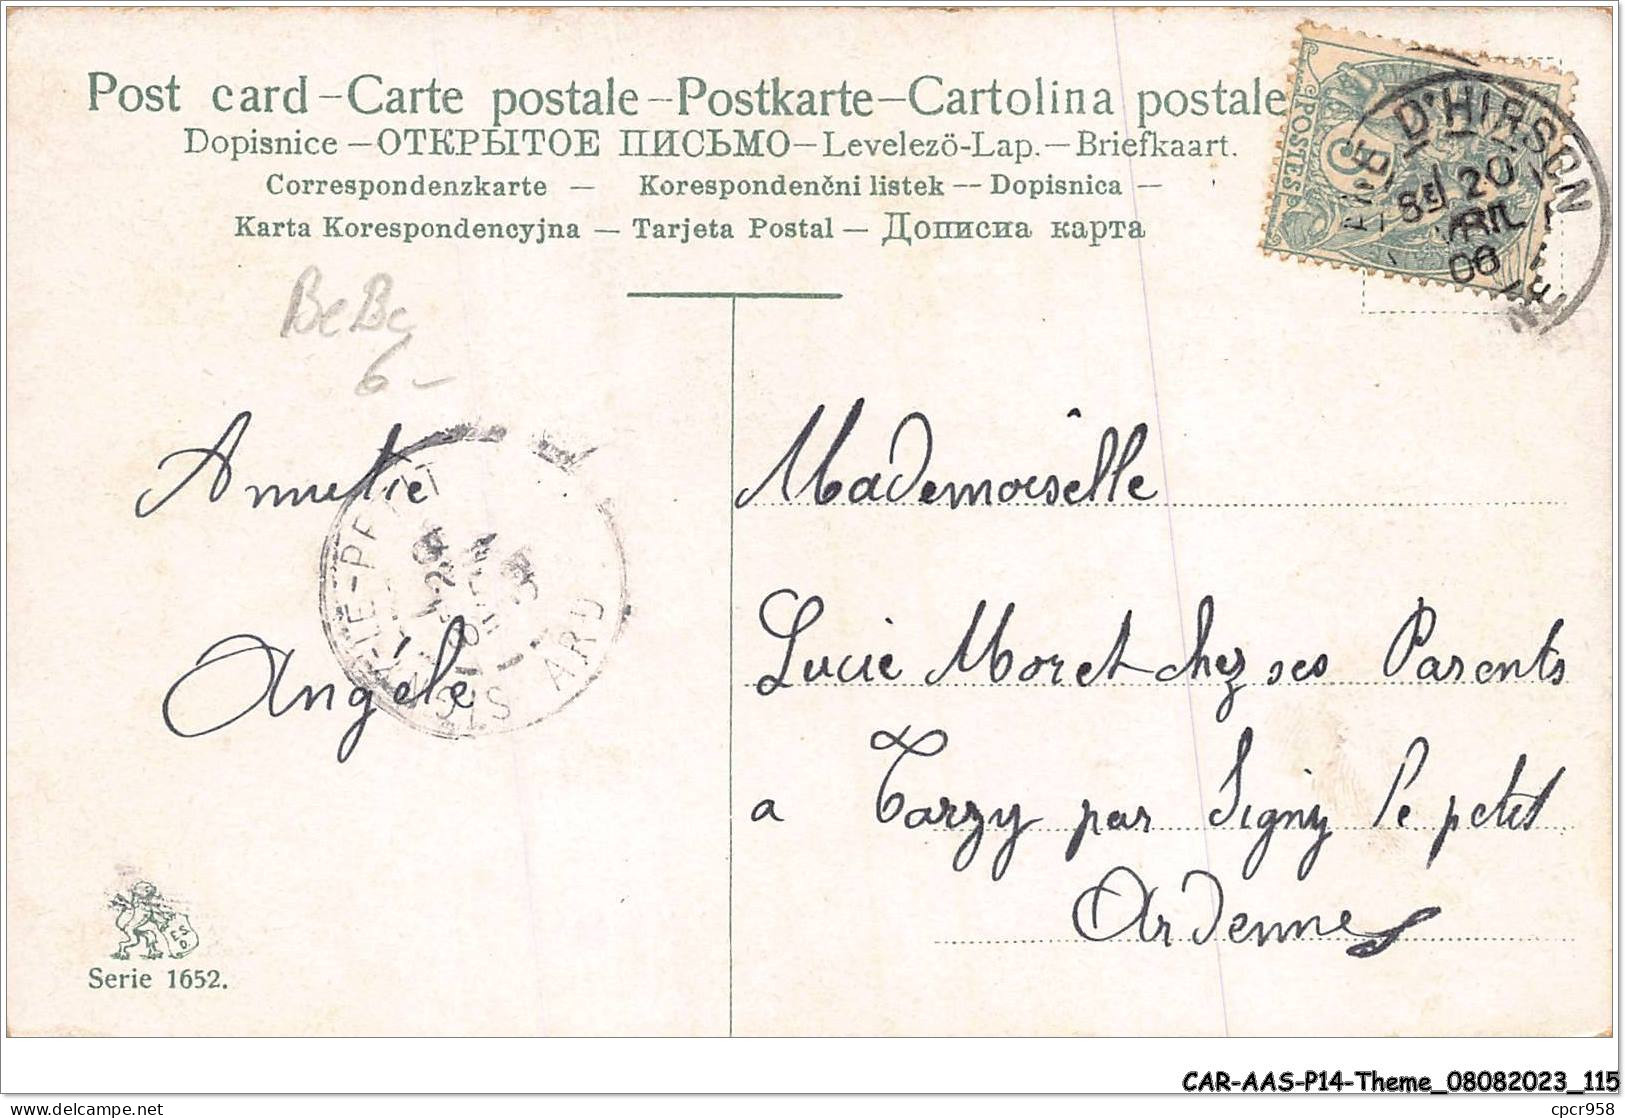 Post card – Carte postale – Postkarte – Cartolina postale
Dopisnice – ОТКРЫТОЕ ПИСЬМО – Levelezö-Lap. – Briefkaart.
Correspondenzkarte – Korespondenčni listek – Dopisnica –
Karta Korespondencyjna – Tarjeta Postal – Дописна карта
POSTES
D'HIRSON
20
06
BeBe
6 –
Amitie
Angéle
Mademoiselle
Lucie Moret chez ses Parents
a Tarzy par Signy le petit
Ardennes
Serie 1652.
CAR-AAS-P14-Theme_08082023_115
https://www.delcampe.net
cpcr958